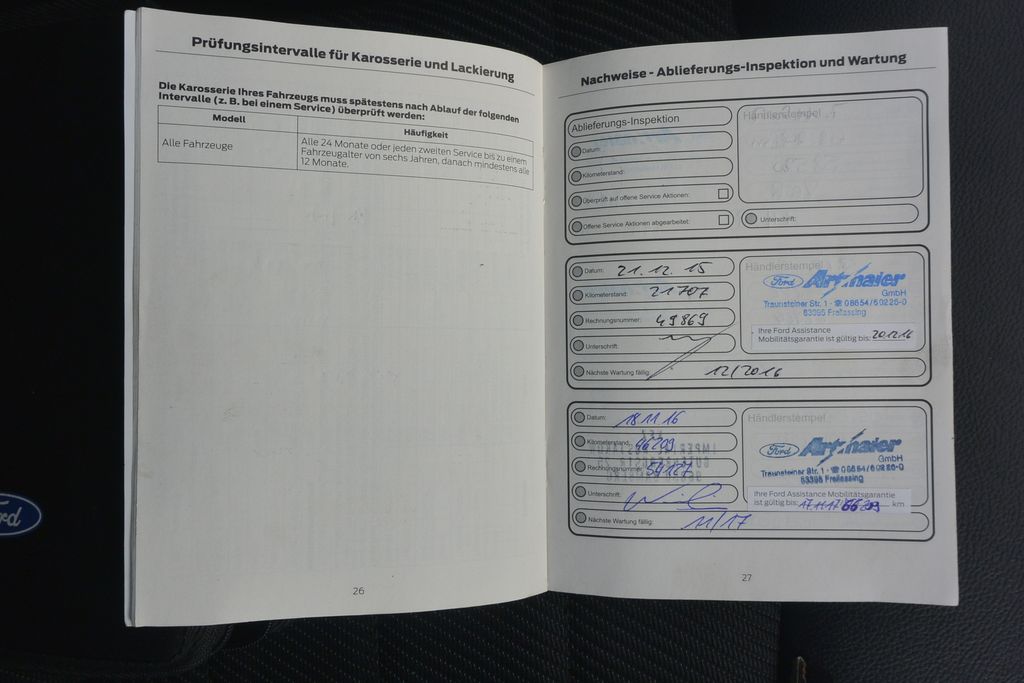 Prüfungsintervalle für Karosserie und Lackierung
Die Karosserie Ihres Fahrzeugs muss spätestens nach Ablauf der folgenden
Intervalle (z. B. bei einem Service) überprüft werden:
Modell
Häufigkeit
Alle Fahrzeuge
Alle 24 Monate oder jeden zweiten Service bis zu einem
Fahrzeugalter von sechs Jahren, danach mindestens alle
12 Monate.
26
Nachweise - Ablieferungs-Inspektion und Wartung
Ablieferungs-Inspektion
Datum:
Kilometerstand:
Überprüft auf offene Service Aktionen:
Offene Service Aktionen abgearbeitet:
Händlerstempel
Unterschrift:
Datum: 21.12.15
Kilometerstand: 21707
Rechnungsnummer: 49869
Unterschrift:
Nächste Wartung fällig: 12/2016
Händlerstempel
Ford
GmbH
Traunsteiner Str. 1 - ☎ 08654/60226-0
83395 Freilassing
Ihre Ford Assistance
Mobilitätsgarantie ist gültig bis: 20.12.16
Datum: 18 11 16
Kilometerstand: 46209
Rechnungsnummer: 54127
Unterschrift:
Nächste Wartung fällig: 11/17
Händlerstempel
Ford
GmbH
Traunsteiner Str. 1 - ☎
83395 Freilassing
Ihre Ford Assistance Mobilitätsgarantie
ist gültig bis: 17.11.17 km
27